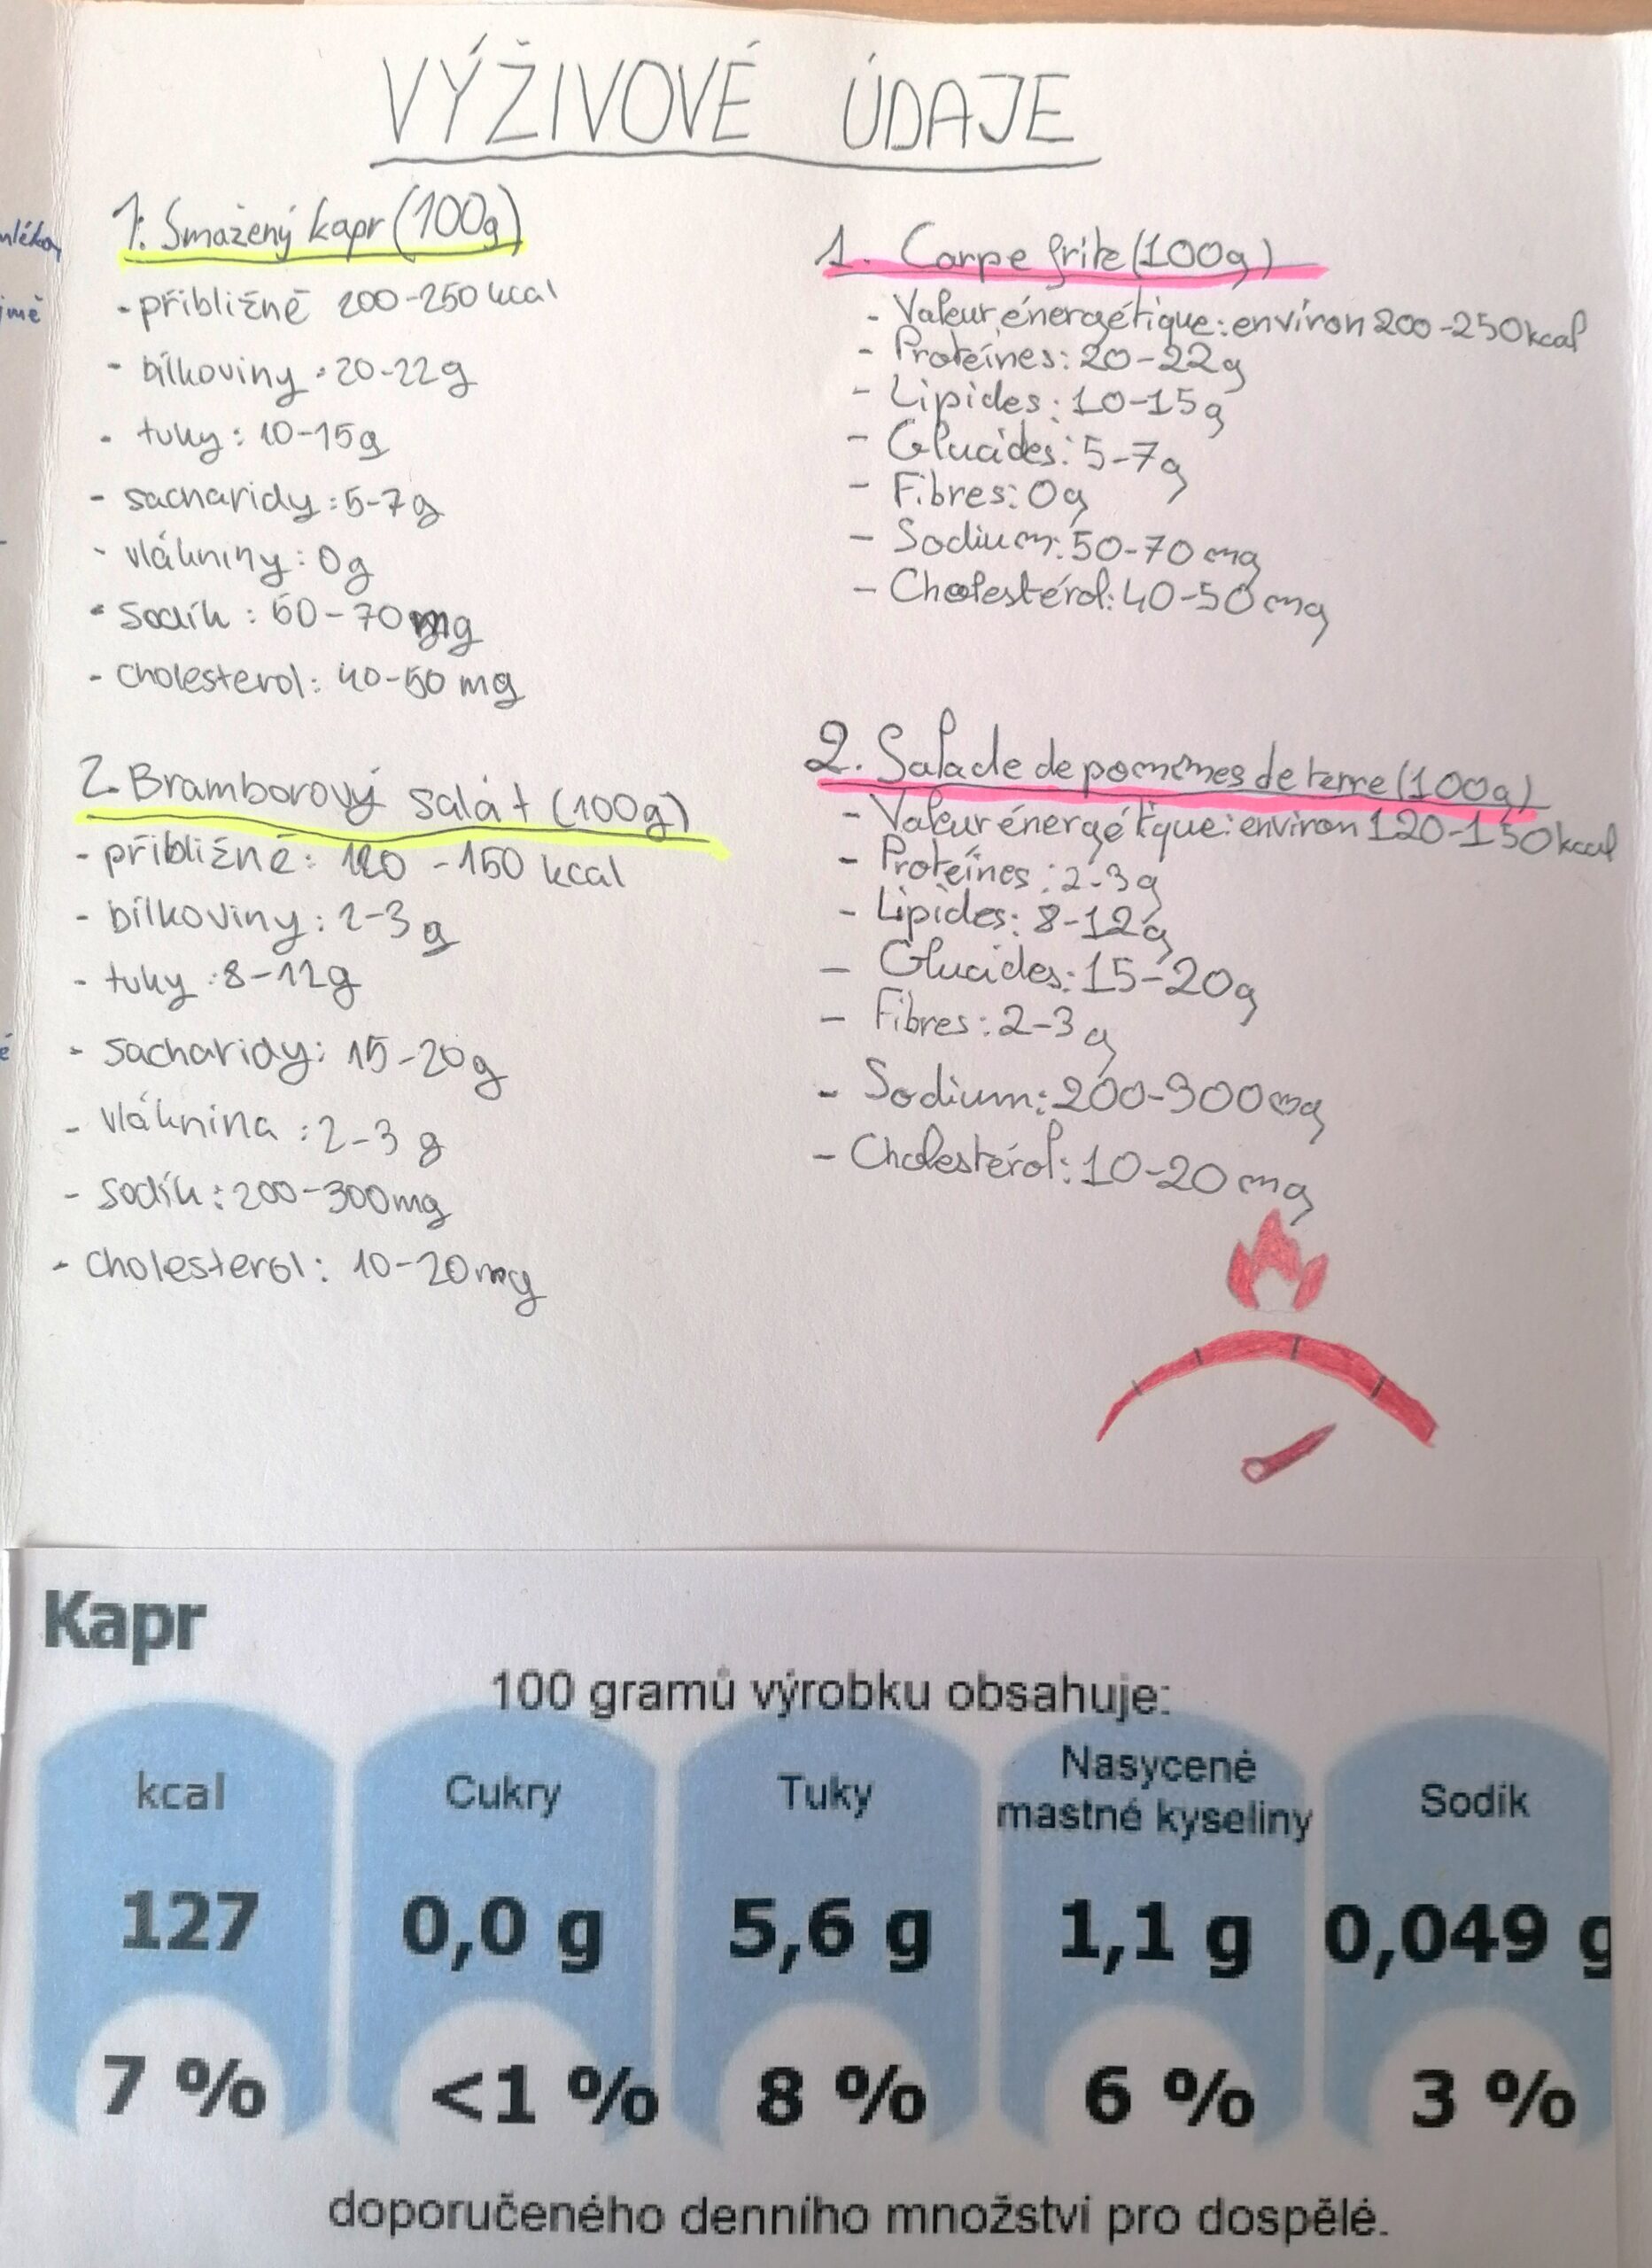 VÝŽIVOVÉ ÚDAJE
1. Smažený kapr (100g)
- přibližně 200-250 kcal
- bílkoviny: 20-22g
- tuky: 10-15g
- sacharidy: 5-7g
- vlákniny: 0g
- sodík: 60-70mg
- cholesterol: 40-50 mg
2. Bramborový salát (100g)
- přibližně: 120-150 kcal
- bílkoviny: 2-3g
- tuky: 8-12g
- sacharidy: 15-20g
- vláknina: 2-3 g
- sodík: 200-300mg
- cholesterol: 10-20mg
1. Carpe frite (100g)
- Valeur énergétique: environ 200-250kcal
- Proteínes: 20-22g
- Lipides: 10-15g
- Glucides: 5-7g
- Fibres: 0g
- Sodium: 50-70 mg
- Cholestérol: 40-50 mg
2. Salade de pommes de terre (100g)
- Valeur énergétique: environ 120-150kcal
- Proteínes: 2-3g
- Lipides: 8-12g
- Glucides: 15-20g
- Fibres: 2-3g
- Sodium: 200-300mg
- Cholestérol: 10-20 mg
Kapr
100 gramů výrobku obsahuje:
kcal Cukry Tuky Nasycené mastné kyseliny Sodík
127 0,0 g 5,6 g 1,1 g 0,049 g
7 % <1 % 8 % 6 % 3 %
doporučeného denního množství pro dospělé.